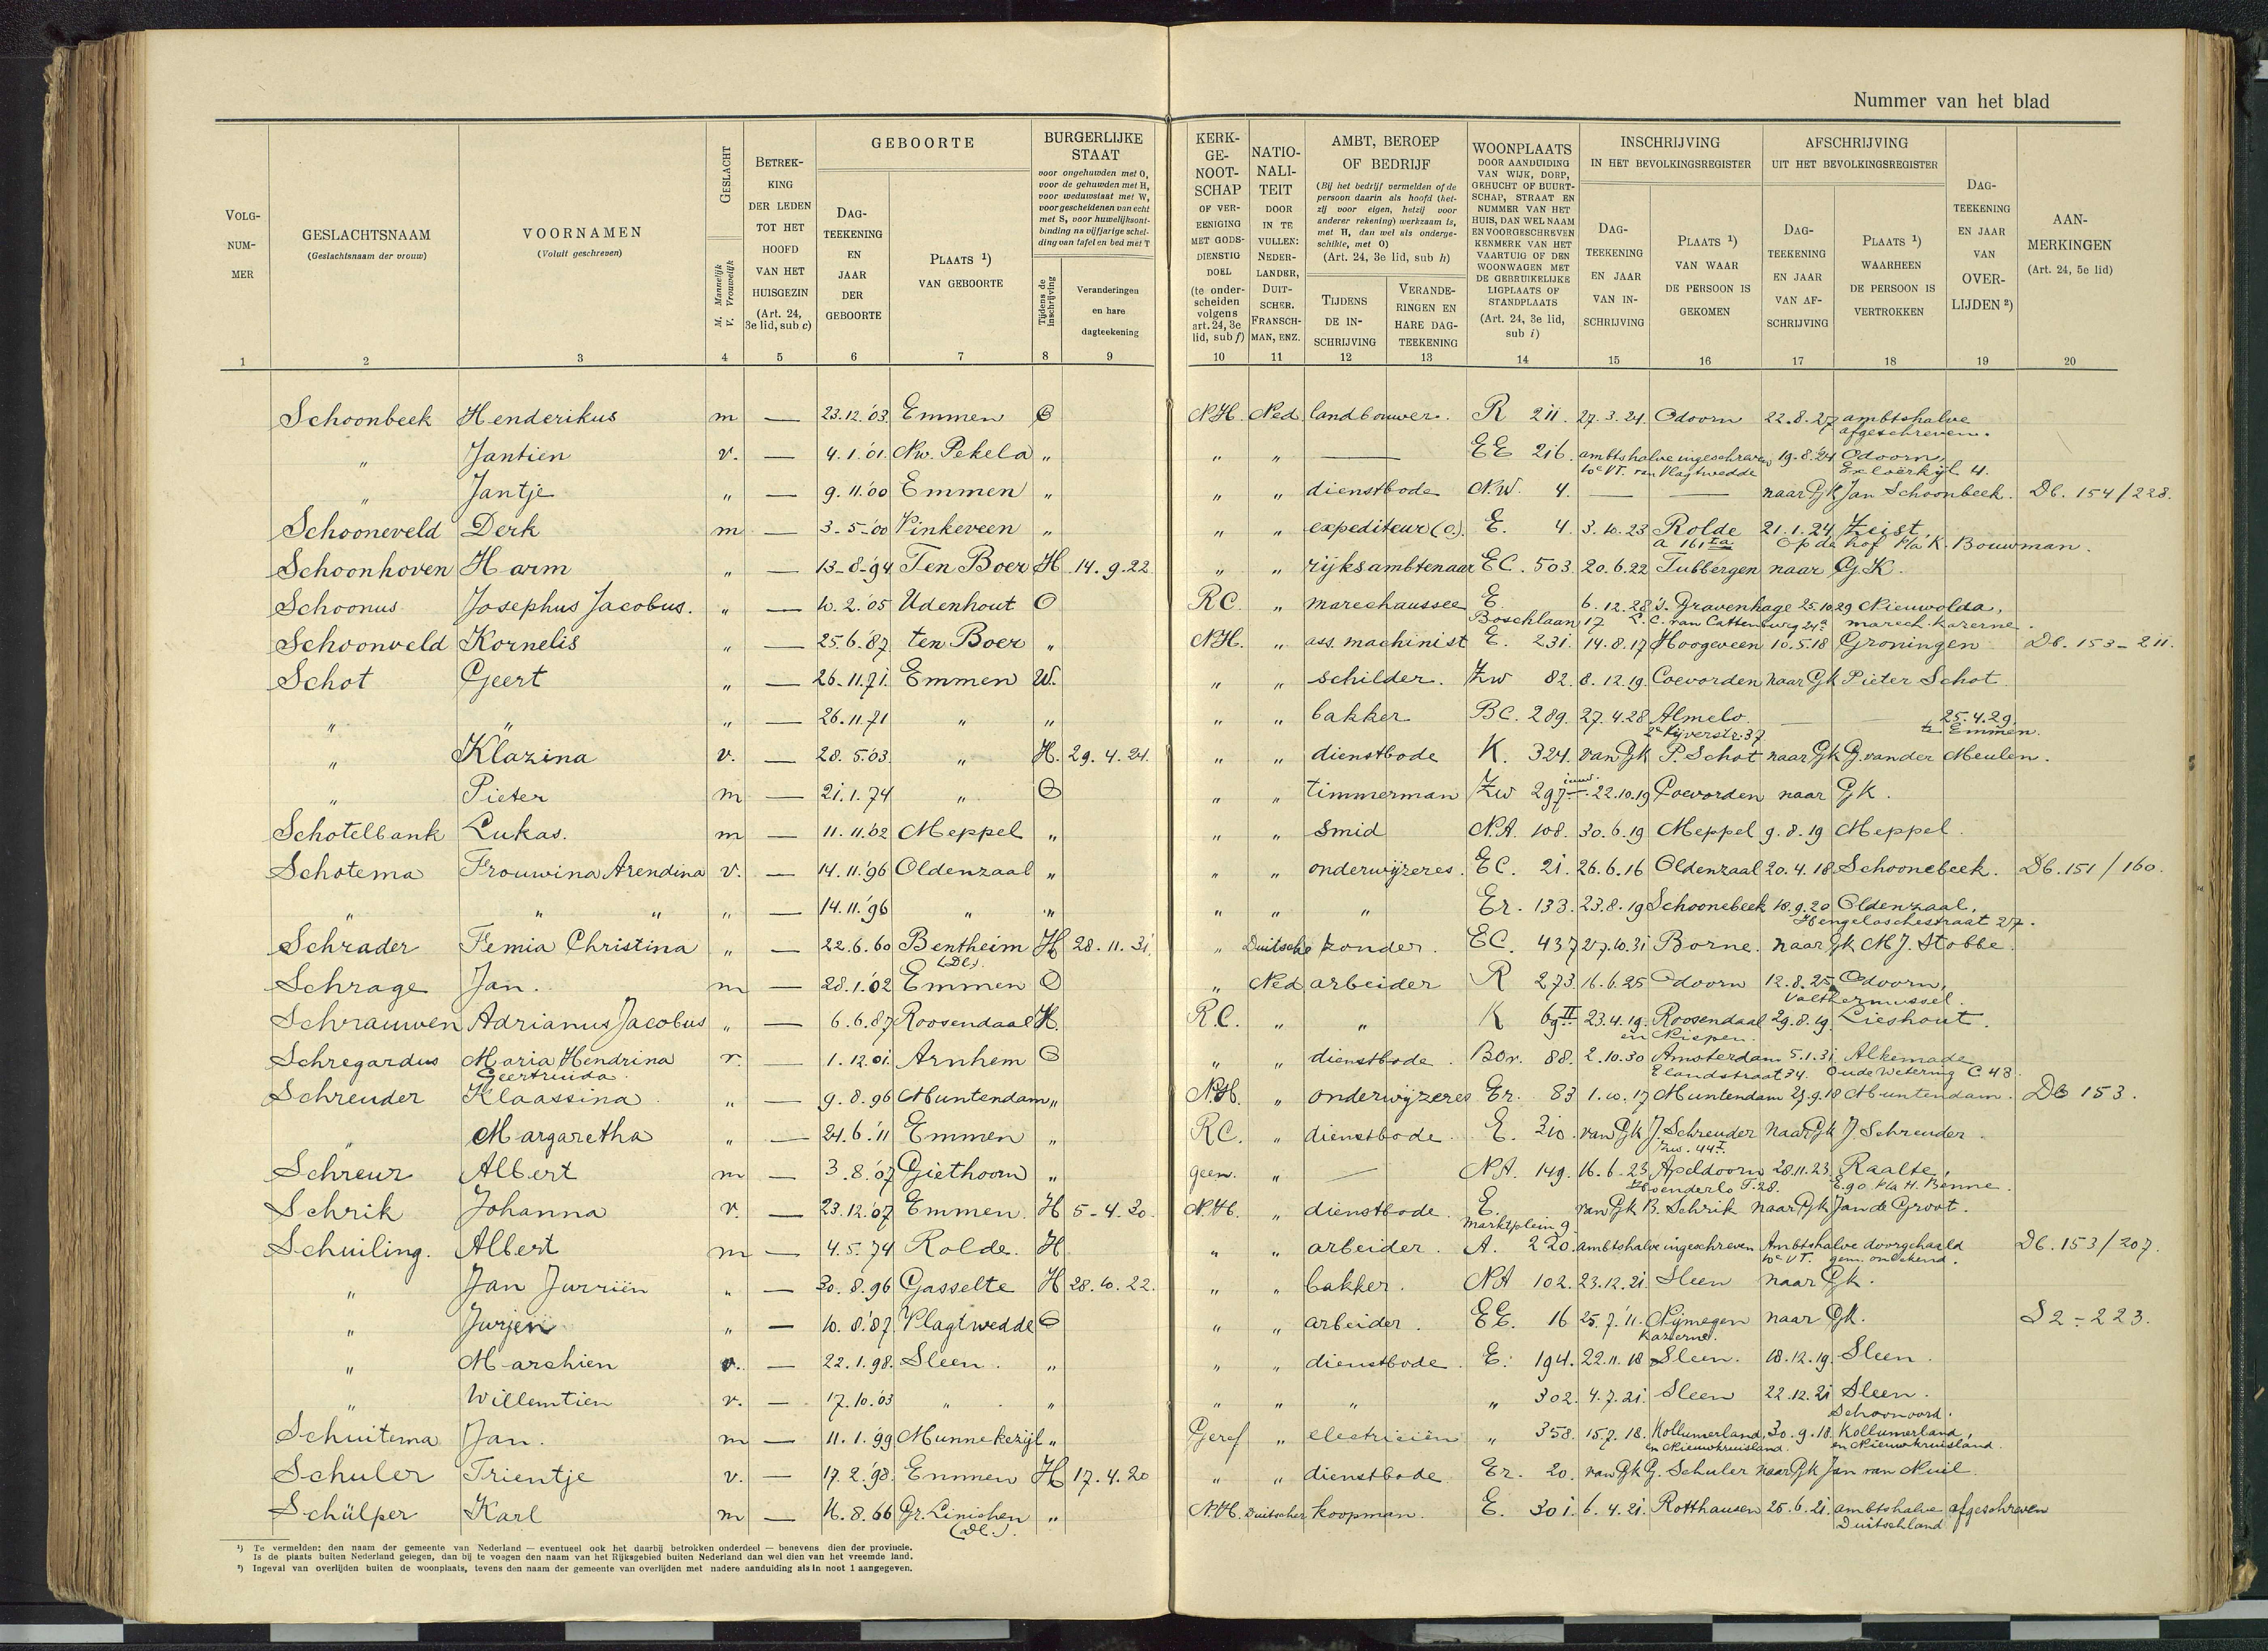 Nummer van het blad
VOLG-NUM-MER
GESLACHTSNAAM (Geslachtsnaam der vrouw)
VOORNAMEN (Voluit geschreven)
GESLACHT M. Mannelijk V. Vrouwelijk
BETREK-KING DER LEDEN TOT HET HOOFD VAN HET HUISGEZIN (Art. 24, 3e lid, sub c)
GEBOORTE
DAG-TEEKENING EN JAAR DER GEBOORTE
PLAATS ¹) VAN GEBOORTE
BURGERLIJKE STAAT
voor ongehuwden met O, voor de gehuwden met H, voor weduwstaat met W, voor gescheidenen van echt met S, voor huwelijksont-binding na vijfjarige schei-ding van tafel en bed met T
Tijdens de inschrijving
Veranderingen en hare dagteekening
KERK-GE-NOOT-SCHAP OF VER-EENIGING MET GODS-DIENSTIG DOEL (te onder-scheiden volgens art. 24, 3e lid, sub f)
NATIO-NALI-TEIT DOOR IN TE VULLEN: NEDER-LANDER, DUIT-SCHER, FRANSCH-MAN, ENZ.
AMBT, BEROEP OF BEDRIJF
(Bij het bedrijf vermelden of de persoon daarin als hoofd (het-zij voor eigen, hetzij voor anderer rekening) werkzaam is, met H, dan wel als onderge-schikte, met O) (Art. 24, 3e lid, sub h)
TIJDENS DE IN-SCHRIJVING
VERANDE-RINGEN EN HARE DAG-TEEKENING
WOONPLAATS DOOR AANDUIDING VAN WIJK, DORP, GEHUCHT OF BUURT-SCHAP, STRAAT EN NUMMER VAN HET HUIS, DAN WEL NAAM EN VOORGESCHREVEN KENMERK VAN HET VAARTUIG OF DEN WOONWAGEN MET DE GEBRUIKELIJKE LIGPLAATS OF STANDPLAATS (Art. 24, 3e lid, sub i)
INSCHRIJVING IN HET BEVOLKINGSREGISTER
DAG-TEEKENING EN JAAR VAN IN-SCHRIJVING
PLAATS ¹) VAN WAAR DE PERSOON IS GEKOMEN
AFSCHRIJVING UIT HET BEVOLKINGSREGISTER
DAG-TEEKENING EN JAAR VAN AF-SCHRIJVING
PLAATS ¹) WAARHEEN DE PERSOON IS VERTROKKEN
DAG-TEEKENING EN JAAR VAN OVER-LIJDEN ²)
AAN-MERKINGEN (Art. 24, 5e lid)
1 2 3 4 5 6 7 8 9 10 11 12 13 14 15 16 17 18 19 20
Schoonbeek Henderikus m — 23.12.'03. Emmen O N.H. Ned. landbouwer. R 211. 27.3.24. Odoorn 22.8.27 ambtshalve
afgeschreven.
" Jantien v. — 4.1.'01. Nw. Pekela " " " — EE 216. ambtshalve ingeschreven 19.8.24 Odoorn,
10e VT. van Vlagtwedde Exloërkijl 4.
" Jantje " — 9.11.'00 Emmen " " " dienstbode N.W. 4. — — naar GK Jan Schoonbeek. Db. 154/228.
Schooneveld Derk m — 3-5-'00 Vinkeveen " " " expediteur (O). E. 4. 3.10.23 Rolde 21.1.24 Zeist,
a 161 Ia Op de hof p/a K. Bouwman.
Schoonhoven Harm " — 13-8-'94 Ten Boer H 14.9.22. " " rijksambtenaar EC. 503. 20.6.22 Tubbergen naar GK.
Schoonus Josephus Jacobus. " — 10.2.'05 Udenhout O RC. " marechaussee E. 6.12.28 's Gravenhage 25.10.29 Nieuwolda,
Boschlaan 17 L.C. van Cattenburg 24a marech. kazerne.
Schoonveld Kornelis " — 25.6.'87 ten Boer " N.H. " ass. machinist E. 231. 14.8.17 Hoogeveen 10.5.18 Groningen Db. 153-211.
Schot Geert " — 26-11.71. Emmen W. " " schilder. Zw 82. 8.12.19. Coevorden naar GK Pieter Schot
" " " — 26.11.71 " " " " bakker BC. 289. 27.4.28 Almelo. — — 25.4.29.
2e Vijverstr. 37 te Emmen.
" Klazina v. — 28.5.'03 " H. 29.4.24. " " dienstbode K. 324. van GK P. Schot naar GK G. van der Meulen.
" Pieter m — 21.1.74 " O " " timmerman Zw 297 inw. 22.10.19 Coevorden naar GK.
Schotelbank Lukas. m — 11.11.'02 Meppel " " " smid N.A. 108. 30.6.19 Meppel 9.8.19 Meppel.
Schotema Frouwina Arendina v. — 14.11.'96 Oldenzaal " " " onderwijzeres. EC. 21. 26.6.16 Oldenzaal 20.4.18 Schoonebeek. Db. 151/160.
" " " " — 14.11.'96 " " " " " Er. 133. 23.8.19 Schoonebeek 18.9.20 Oldenzaal,
Hengeloschestraat 27.
Schrader Femia Christina " — 22.6.60 Bentheim H 28.11.31. " Duitsche zonder. EC. 437 27.10.31 Borne. naar GK M.J. Stobbe.
(Dl.)
Schrage Jan. m — 28.1.'02 Emmen O " Ned. arbeider R 273 16.6.25 Odoorn 12.8.25 Odoorn,
Valthermussel.
Schrauwen Adrianus Jacobus " — 6.6.87 Roosendaal H. R.C. " " K 69 II 23.4.19. Roosendaal 29.8.19 Lieshout.
en Nispen.
Schregardus Maria Hendrina v. — 1.12.01. Arnhem O " " dienstbode. Bor. 88. 2.10.30 Amsterdam 5.1.31 Alkemade
Geertruida. Elandstraat 34. Oude Wetering C 43.
Schreuder Klaassina. " — 9.8.96 Muntendam " N.H. " onderwijzeres Er. 83 1.10.17 Muntendam 27.9.18 Muntendam. Db 153.
" Margaretha " — 24.6.'11 Emmen " RC. " dienstbode. E. 310. van GK J. Schreuder naar GK J. Schreuder.
Zw. 44 I.
Schreur Albert m — 3.8.'07 Giethoorn " geen. " — N.A. 149. 16.6.23. Apeldoorn 28.11.23. Raalte,
Hoenderlo T.28. E.90 p/a H. Benne.
Schrik Johanna v. — 23.12.'07 Emmen. H 5-4.30. N.H. " dienstbode. E. van GK B. Schrik naar GK Jan de Groot.
Marktplein 9
Schuiling. Albert m — 4.5.74 Rolde. H " " arbeider. A. 220. ambtshalve ingeschreven Ambtshalve doorgehaald Db. 153/207.
10e VT. gem. onbekend.
" Jan Jurriën " — 30.8.96 Gasselte H 28.10.22. " " bakker. NA 102. 23.12.21. Sleen naar GK.
" Jurjen " — 10.8.'87. Vlagtwedde O " " arbeider. EE. 16 25.7.'11. Nijmegen naar GK. S2-223.
kazerne.
" Marchien v. — 22.1.98. Sleen. " " " dienstbode. E. 194. 22.11.18 Sleen. 18.12.19. Sleen.
" Willemtien v. — 17.10.'03 " " " " " " 302. 4.7.21. Sleen 22.12.21 Sleen.
Schoonoord.
Schuitema Jan. m — 11.1.'99 Munnekezijl " Geref " electriciën " 358. 15.7.18. Kollumerland, 30.9.18. Kollumerland,
en Nieuwkruisland. en Nieuwkruisland.
Schuler Trientje v. — 17.2.'98. Emmen H 17.4.20 " " dienstbode Er. 20. van GK G. Schuler naar GK Jan van Nuil.
Schülper Karl m — 16.8.66 Gr. Linichen " N.H. Duitscher koopman. E. 301. 6.4.21. Rotthausen 25.6.21. ambtshalve afgeschreven
(Dl.). Duitschland
¹) Te vermelden: den naam der gemeente van Nederland — eventueel ook het daarbij betrokken onderdeel — benevens dien der provincie.
Is de plaats buiten Nederland gelegen, dan bij te voegen den naam van het Rijksgebied buiten Nederland dan wel dien van het vreemde land.
²) Ingeval van overlijden buiten de woonplaats, tevens den naam der gemeente van overlijden met nadere aanduiding als in noot 1 aangegeven.